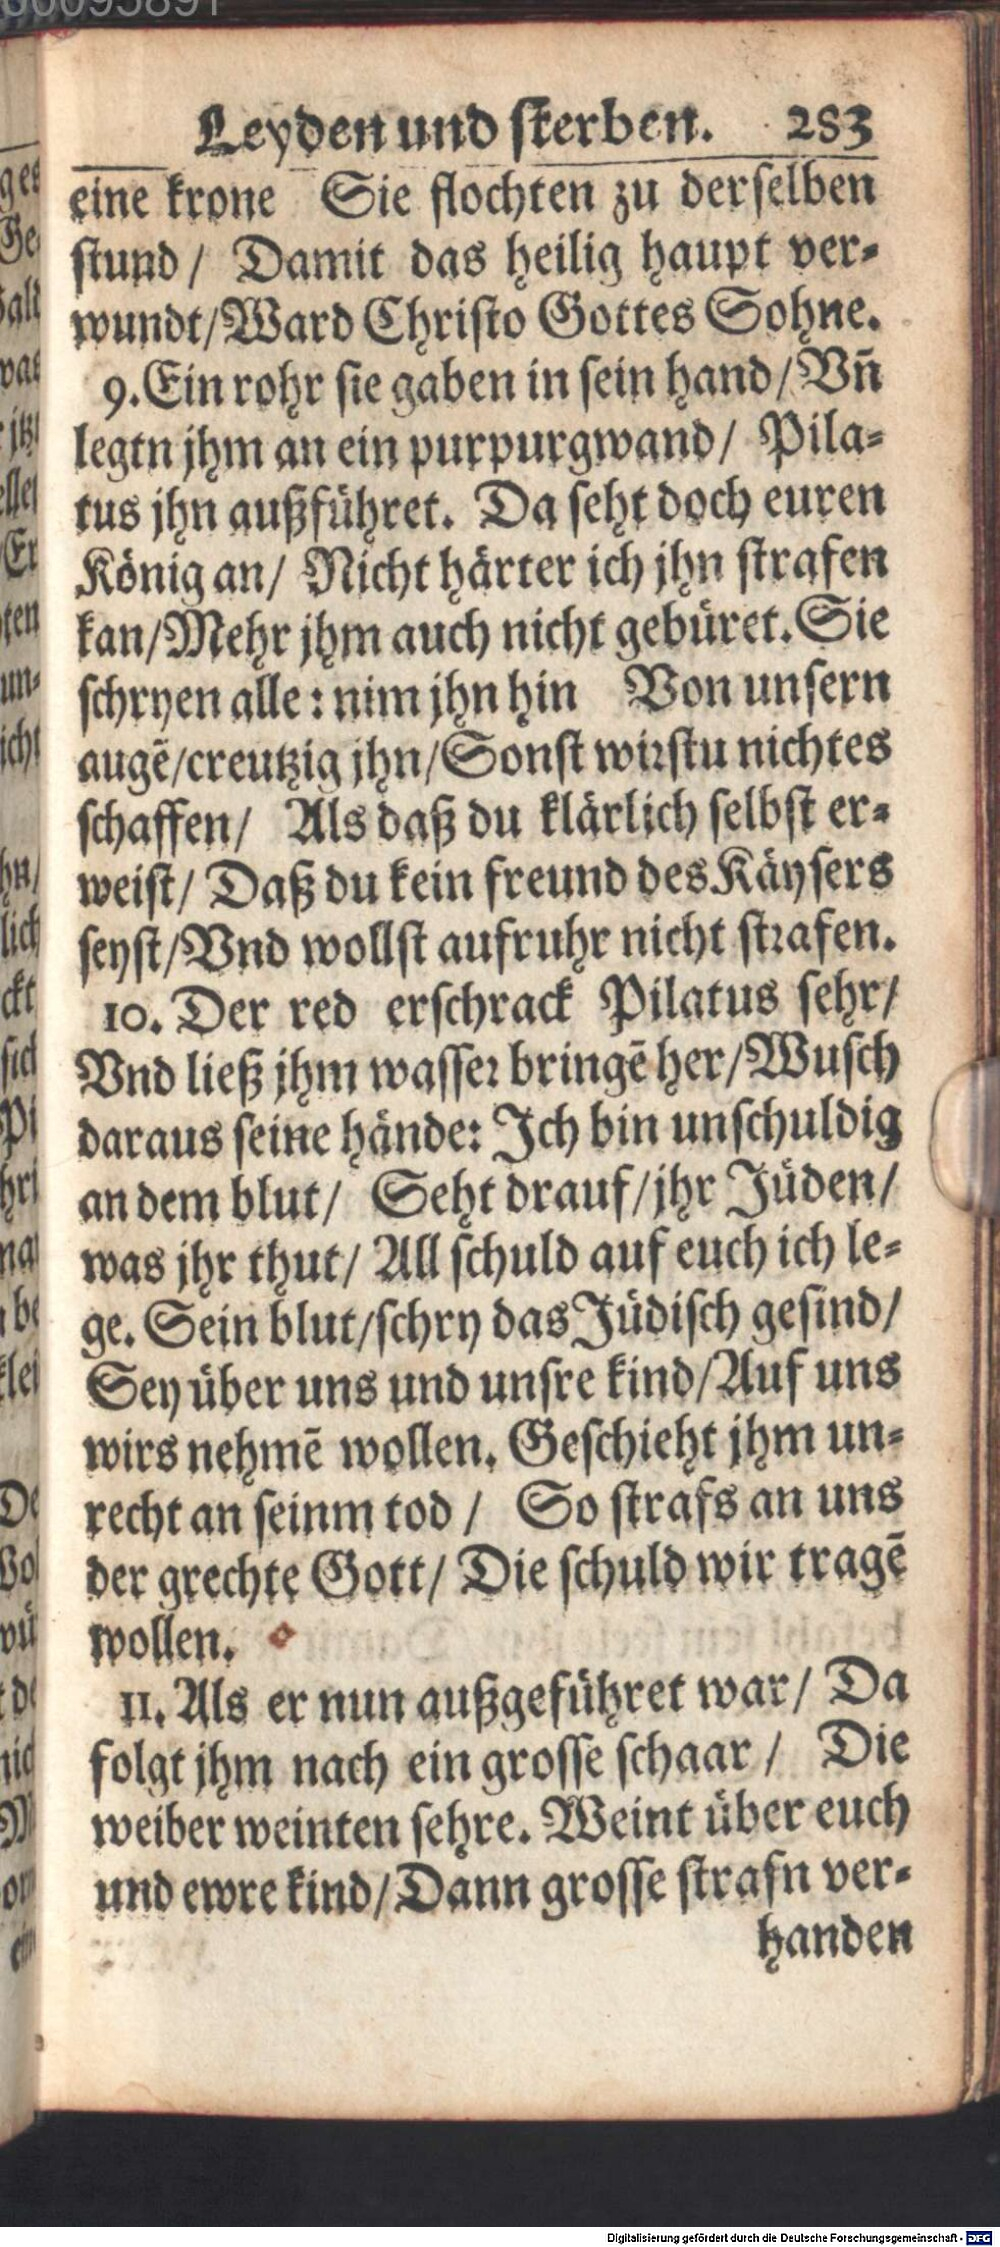 Leyden und sterben. 283
eine krone Sie flochten zu derselben
stund / Damit das heilig haupt ver-
wundt/Ward Christo Gottes Sohne.
9.Ein rohr sie gaben in sein hand/Vn̄
legtn jhm an ein purpurgwand/ Pila-
tus jhn außführet. Da seht doch euren
König an/ Nicht härter ich jhn strafen
kan/Mehr jhm auch nicht gebüret.Sie
schryen alle : nim jhn hin Von unsern
augē/creutzig jhn/Sonst wirstu nichtes
schaffen/ Als daß du klärlich selbst er-
weist/ Daß du kein freund des Käysers
seyst/Vnd wollst aufruhr nicht strafen.
10. Der red erschrack Pilatus sehr/
Vnd ließ jhm wasser bringē her/Wusch
daraus seine hände: Ich bin unschuldig
an dem blut/ Seht drauf/jhr Jüden/
was jhr thut/ All schuld auf euch ich le-
ge. Sein blut/schry das Jüdisch gesind/
Sey über uns und unsre kind/Auf uns
wirs nehmē wollen. Geschieht jhm un-
recht an seinm tod / So strafs an uns
der grechte Gott/ Die schuld wir tragē
wollen.
11. Als er nun außgeführet war/ Da
folgt jhm nach ein grosse schaar / Die
weiber weinten sehre. Weint über euch
und ewre kind/Dann grosse strafn ver-
handen
Digitalisierung gefördert durch die Deutsche Forschungsgemeinschaft - DFG